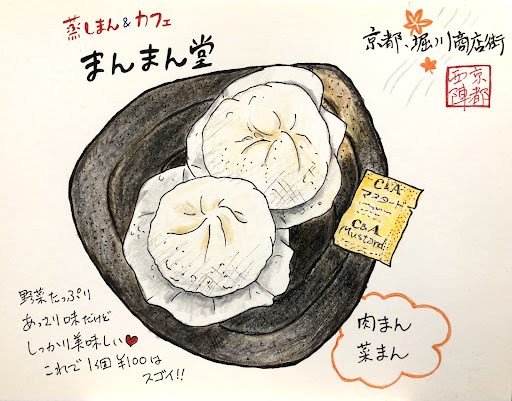 蒸しまん&カフェ
まんまん堂
京都、堀川商店街
京都
西陣
C&A
マスタード
C&A
Mustard
野菜たっぷり
あっさり味だけど
しっかり美味しい♥
これで1個¥100は
スゴイ!!
肉まん
菜まん